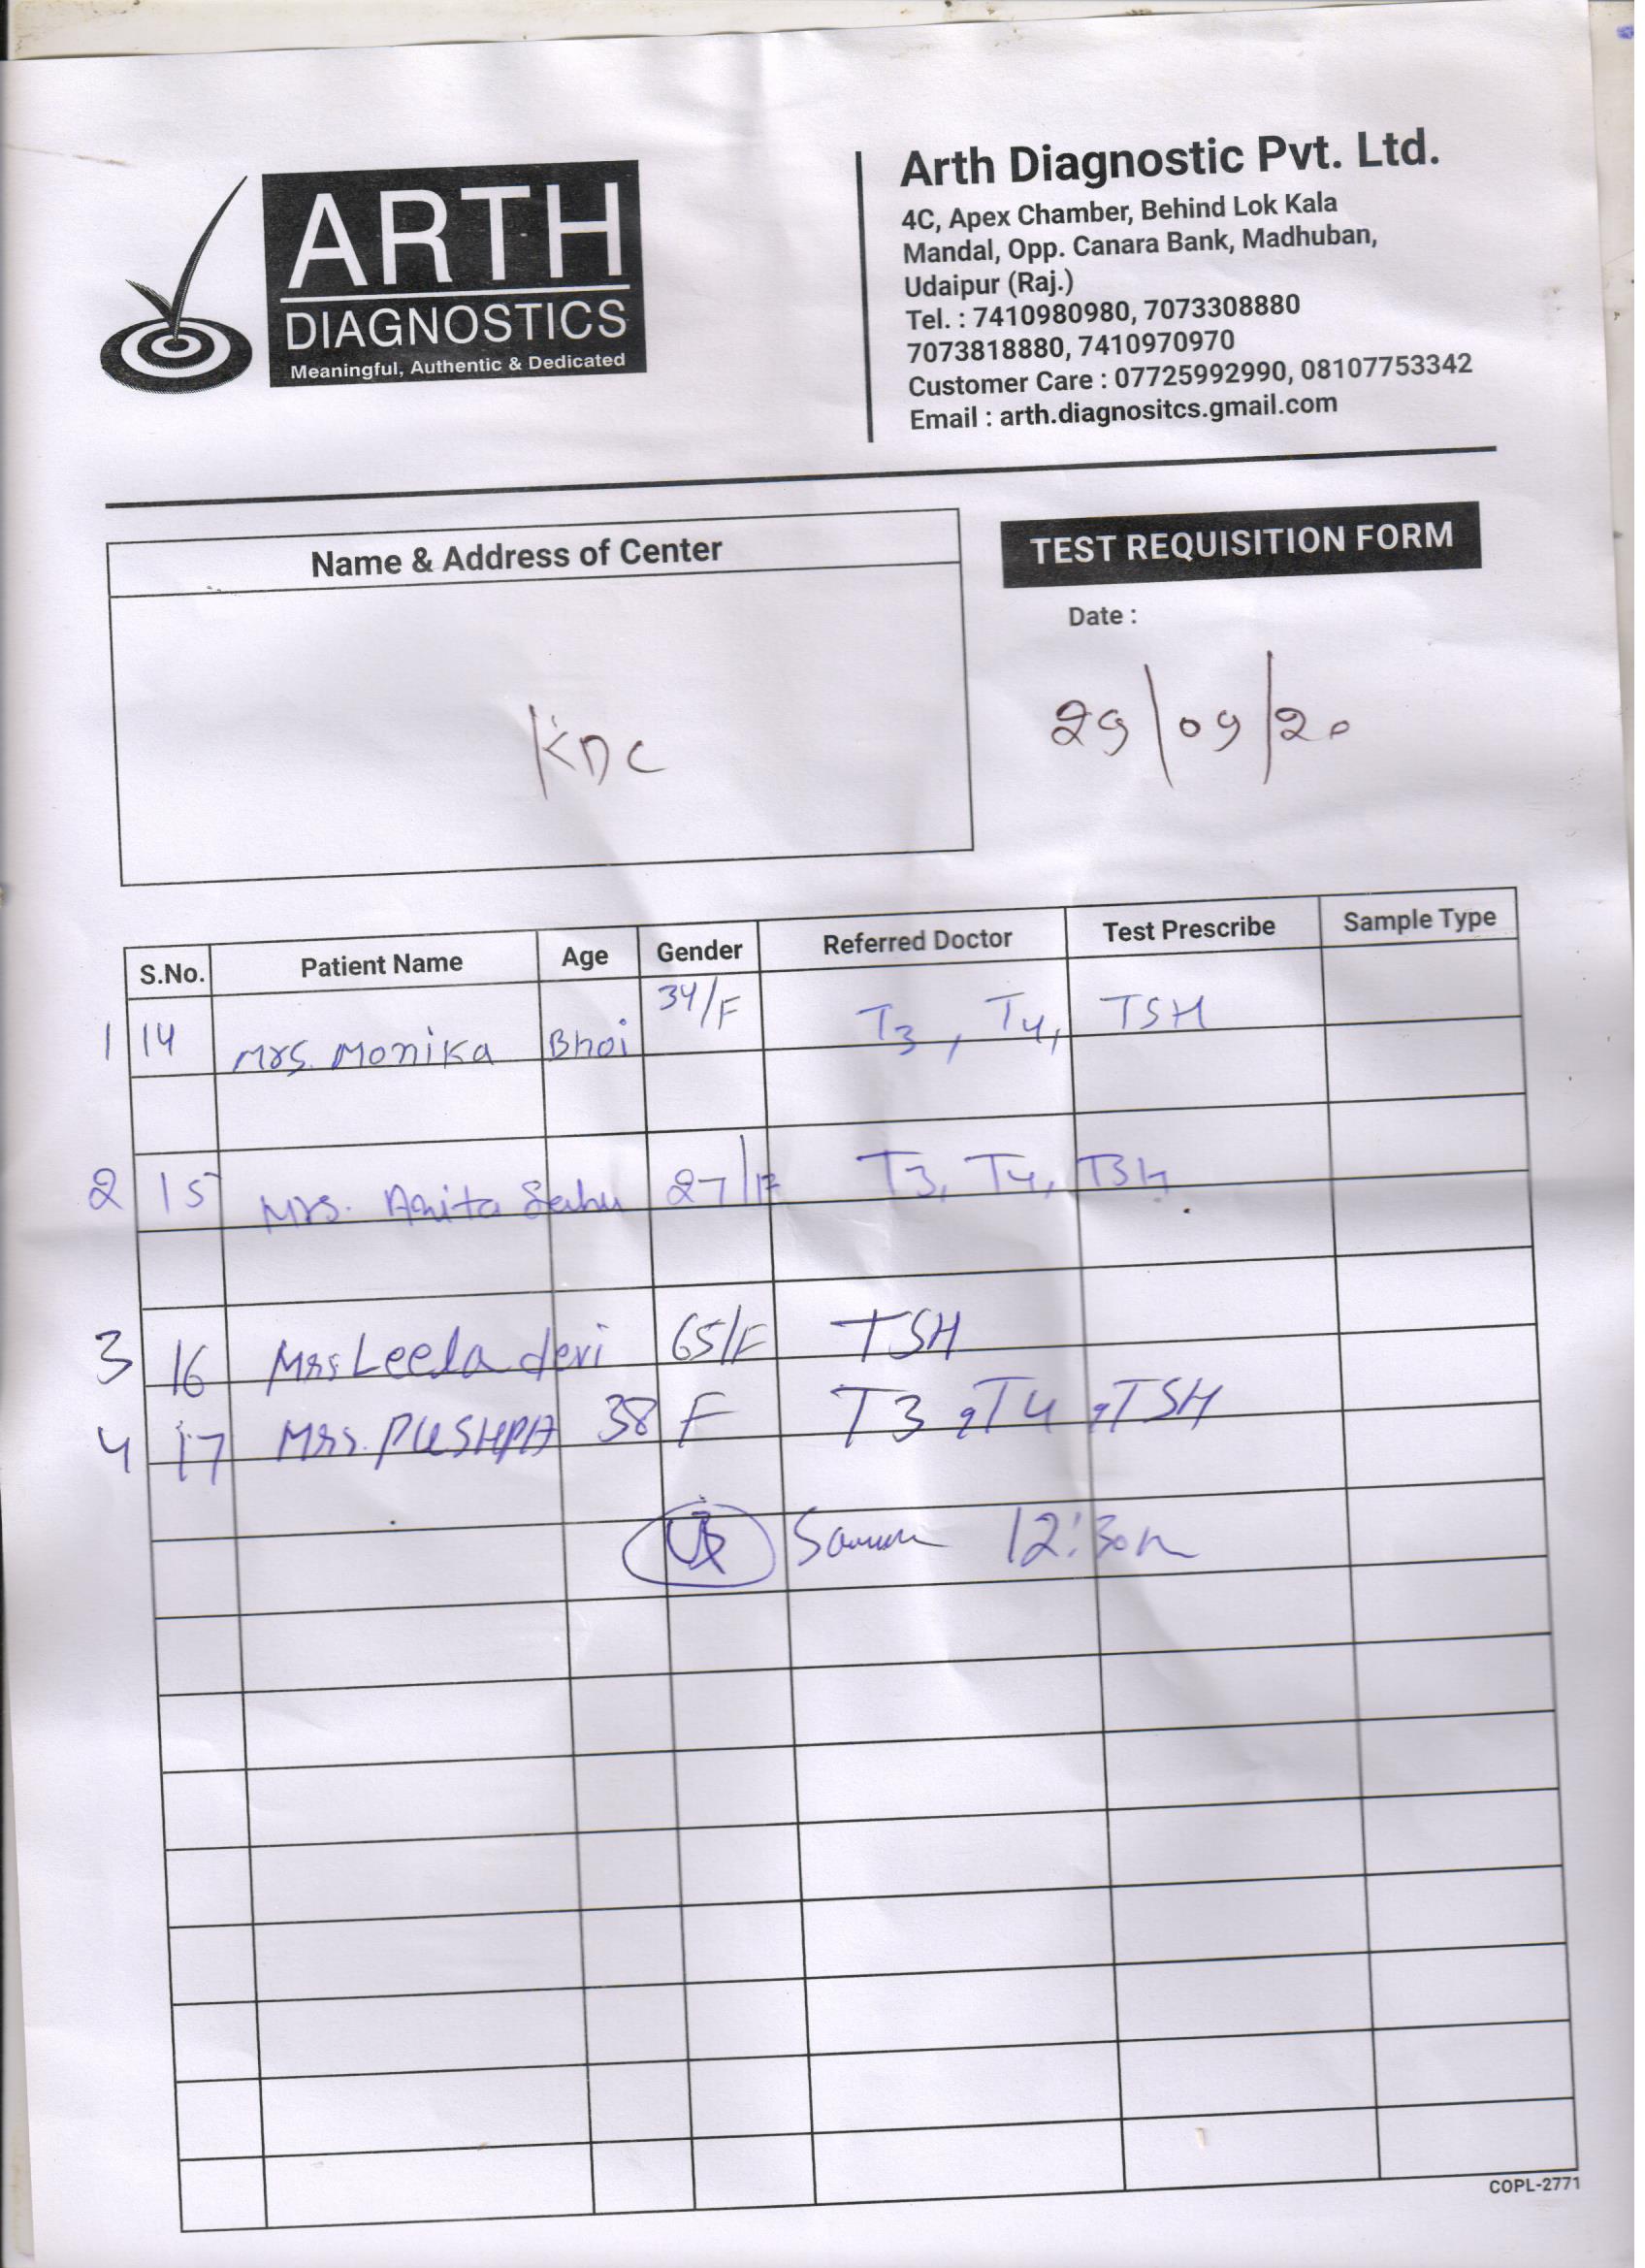 ARTH
DIAGNOSTICS
Meaningful, Authentic & Dedicated
Arth Diagnostic Pvt. Ltd.
4C, Apex Chamber, Behind Lok Kala
Mandal, Opp. Canara Bank, Madhuban,
Udaipur (Raj.)
Tel. : 7410980980, 7073308880
7073818880, 7410970970
Customer Care : 07725992990, 08107753342
Email : arth.diagnositcs.gmail.com
Name & Address of Center
KDC
TEST REQUISITION FORM
Date :
29/09/20
S.No. Patient Name Age Gender Referred Doctor Test Prescribe Sample Type
1 14 Mrs. Monika Bhoi 34/F T3, T4, TSH
2 15 Mrs. Anita Sahu 27/F T3, T4, TSH
3 16 Mrs Leela devi 65/F TSH
4 17 Mrs. PUSHPA 38 F T3, T4, TSH
12:30
COPL-2771